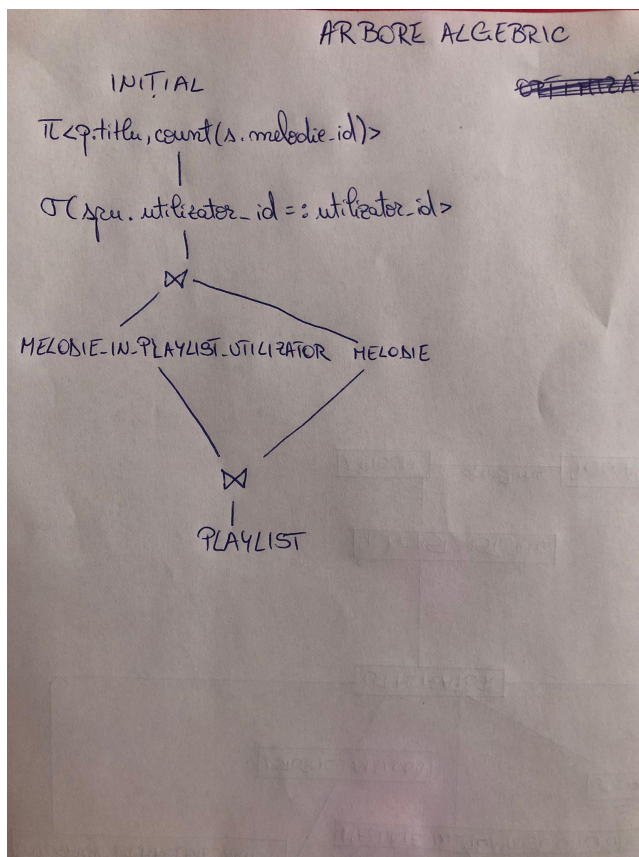 ARBORE ALGEBRIC
INIȚIAL
π<p.titlu, count(s.melodie_id)>
σ(spu.utilizator_id =: utilizator_id>
⋈
MELODIE_IN_PLAYLIST_UTILIZATOR MELODIE
⋈
PLAYLIST